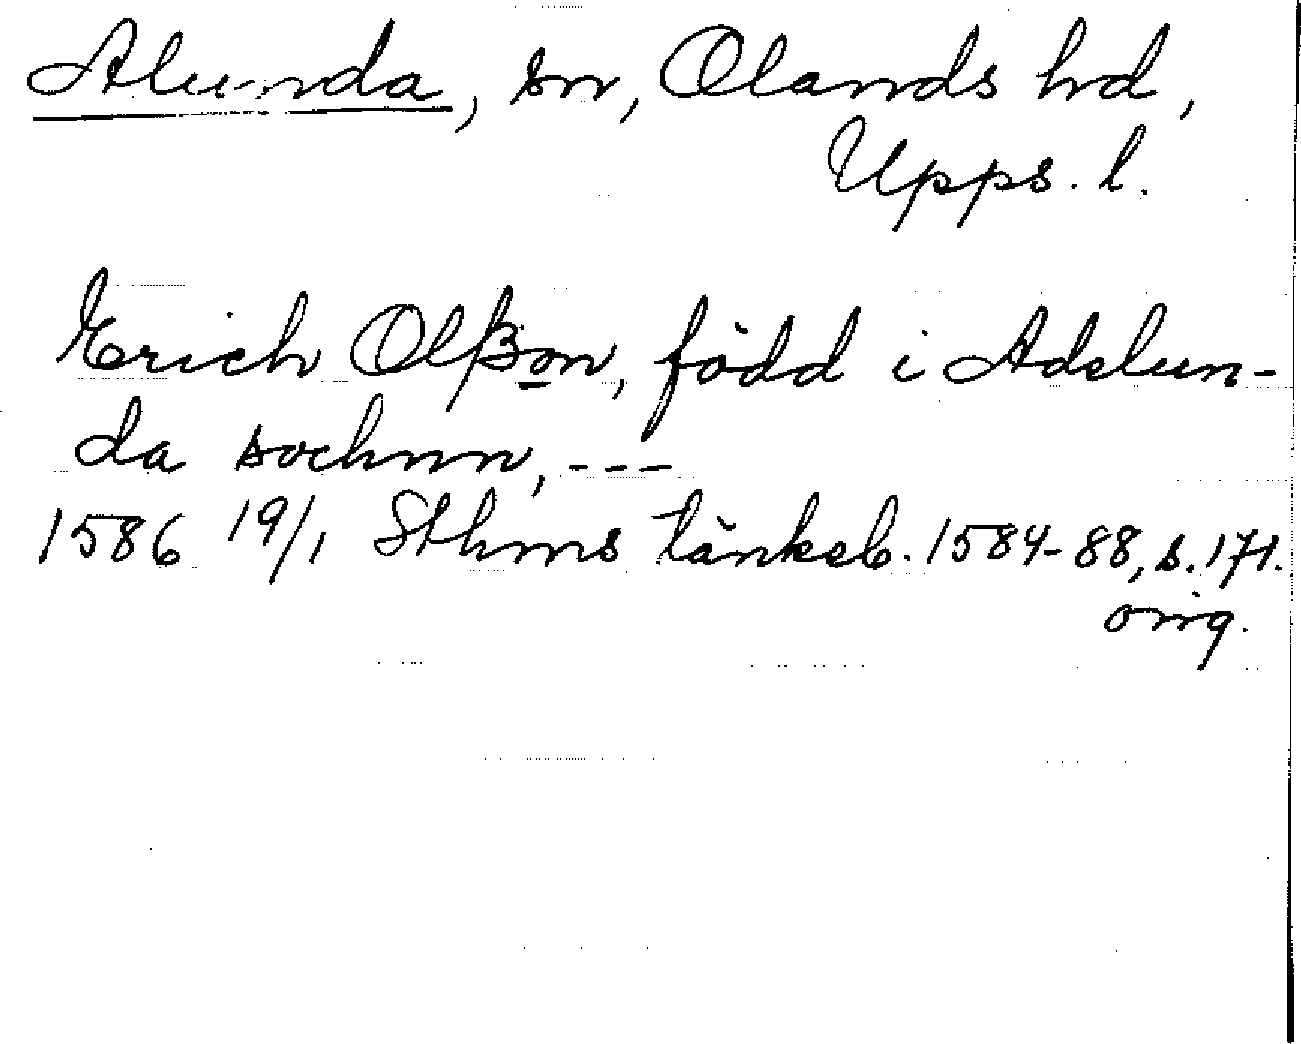 Alunda, sn, Olands hd,
Upps. l.
Erich Olßon, född i Adelun-
da sochnn, ---
1586 19/1 Sthms tänkeb. 1584-88, s. 171.
orig.